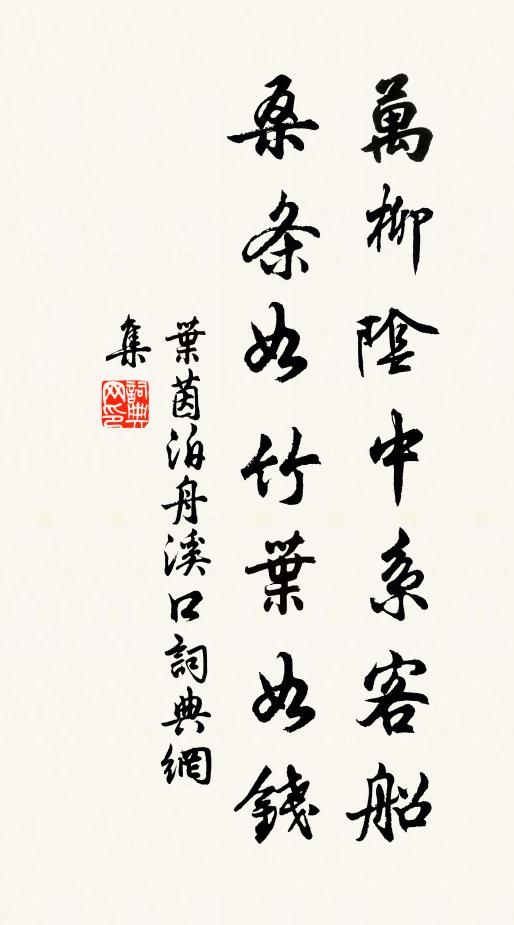 萬柳陰中系客船
桑条如竹葉如錢
葉茵泊舟溪口詞典網
集
詞典網印